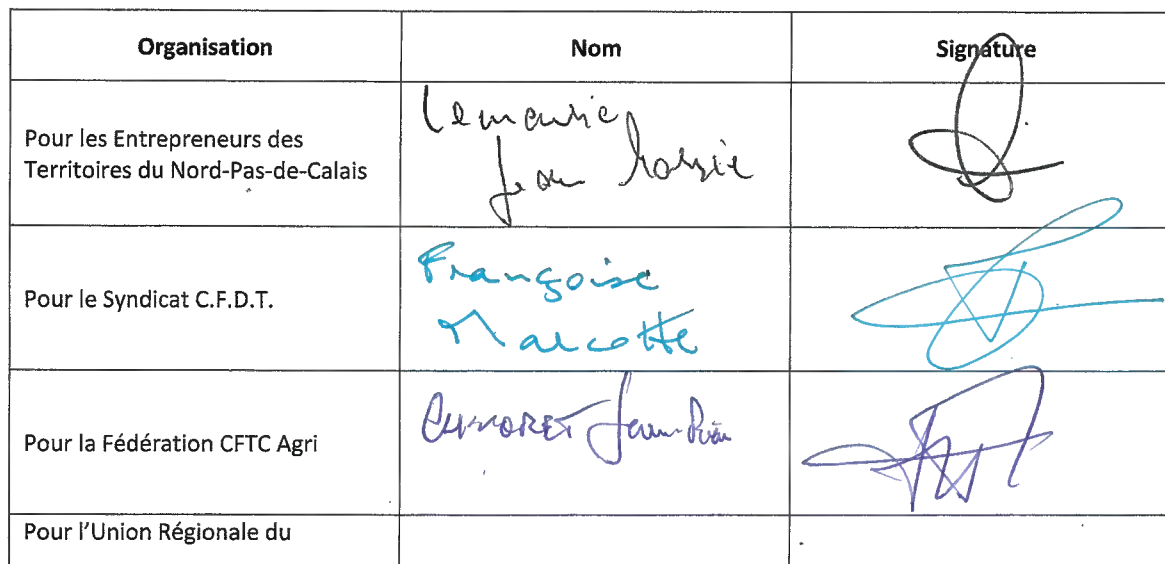 Organisation Nom Signature
Pour les Entrepreneurs des
Territoires du Nord-Pas-de-Calais
Jean
Pour le Syndicat C.F.D.T.
Françoise
Marcotte
Pour la Fédération CFTC Agri
Pour l'Union Régionale du